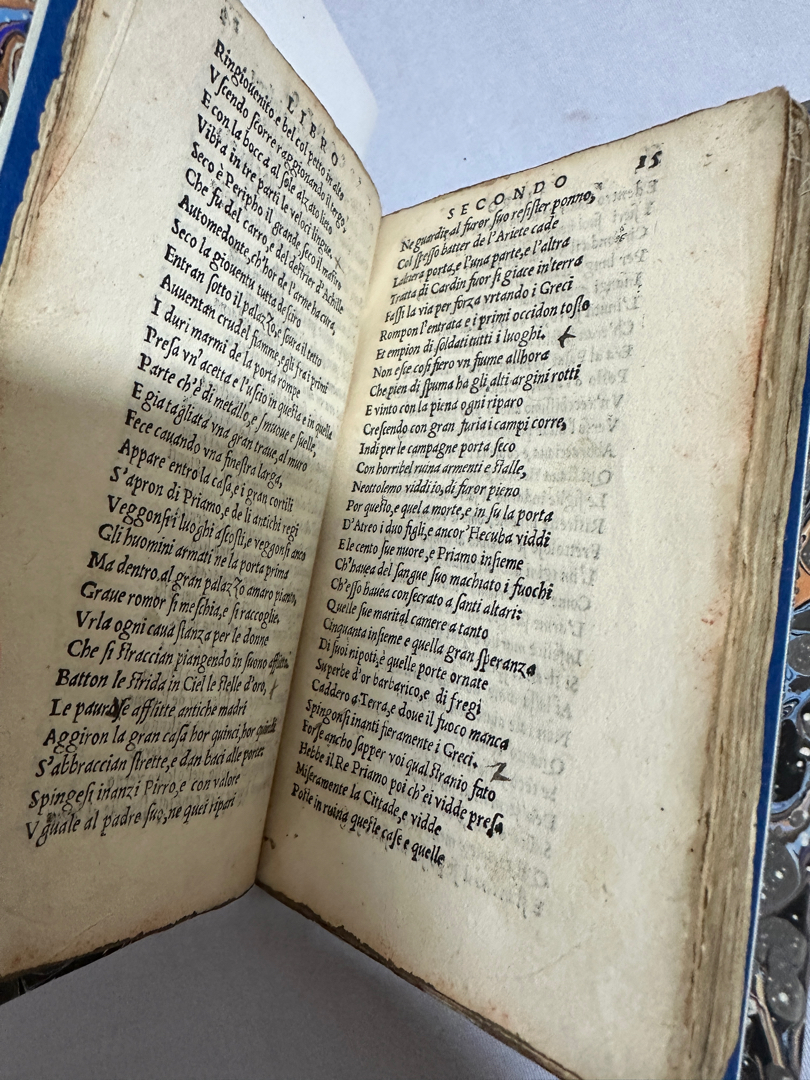 LIBRO
Ringiovenito e bel col petto in alto
Vſcendo ſcorre raggionando il tergo,
E con la bocca al ſole alzato lieto
Vibra in tre parti le veloci lingue.
Seco è Peripho il grande, ſeco il maſtro
Che fu del carro, e del deſtrier d'Achille
Automedonte, ch'hor de l'arme ha cura,
Seco la gioventu tutta de ſciro
Entran ſotto il palazzo, e ſoura il tetto
Auuentan crudel fiamme, egli fra i primi
I duri marmi de la porta rompe
Preſa vn'acetta e l'uſcio in queſta e in quella
Parte ch'è di metallo, e ſmuoue e ſuelle,
E gia tagliata vna gran traue, al muro
Fece cauando vna fineſtra larga,
Appare entro la caſa, e i gran cortili
S'apron di Priamo, e de li antichi regi
Veggonſi i luoghi aſcoſti, e veggonſi anco
Gli huomini armati ne la porta prima
Ma dentro, al gran palazzo amaro pianto,
Graue romor ſi meſchia, e ſi raccoglie,
Vrla ogni caua ſtanza per le donne
Che ſi ſtraccian piangendo in ſuono afflitto
Batton le ſtrida in Ciel le ſtelle d'oro,
Le afflitte antiche madri
Aggiron la gran caſa hor quinci, hor quindi
S'abbraccian ſtrette, e dan baci alle porte:
Spingeſi inanzi Pirro, e con valore
Vguale al padre ſuo, ne quei ripari
SECONDO 15
Ne guardie al furor ſuo reſiſter ponno,
Col ſpeſſo batter de l'Ariete cade
La porta, e l'una parte, e l'altra
Tratta di Cardin fuor ſi giace in terra
Faſſi la via per forza vrtando i Greci
Rompon l'entrata e i primi occidon toſto
Et empion di ſoldati tutti i luoghi.
Non eſce coſi fiero vn fiume allhora
Che pien di ſpuma ha gli alti argini rotti
E vinto con la piena ogni riparo
Creſcendo con gran furia i campi corre,
Indi per le campagne porta ſeco
Con horribel ruina armenti e ſtalle,
Neottolemo viddi io, di furor pieno
Por queſto, e quel a morte, e in ſu la porta
D'Atreo i duo figli, e ancor'Hecuba viddi
E le cento ſue nuore, e Priamo inſieme
Ch'hauea del ſangue ſuo machiato i fuochi
Ch'eſſo hauea conſecrato a ſanti altari:
Quelle ſue marital camere a tanto
Cinquanta inſieme e quella gran ſperanza
Di ſuoi nipoti, è quelle porte ornate
Superbe d'or barbarico, e di fregi
Caddero a Terra, e doue il fuoco manca
Spingonſi inanti fieramente i Greci.
Forſe ancho ſapper voi qual ſtranio fato
Hebbe il Re Priamo poi ch'ei vidde preſa
Miſeramente la Cittade, e vidde
Poſte in ruina queſte caſe e quelle